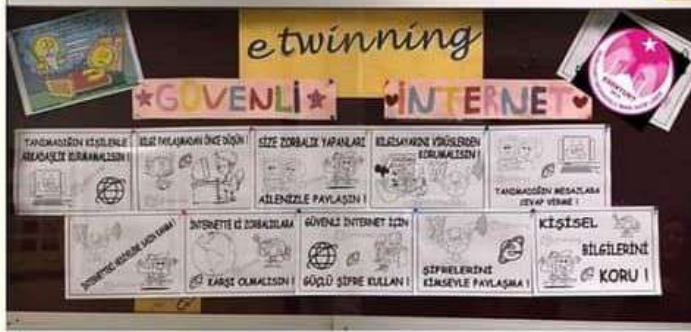 e twinning
GÜVENLİ İNTERNET
TANIMADIĞIN KİŞİLERLE
ARKADAŞLIK KURMAMALISIN !
BİLGİ PAYLAŞMADAN ÖNCE DÜŞÜN !
SİZE ZORBALIK YAPANLARI
AİLENİZLE PAYLAŞIN !
BİLGİSAYARINI VİRÜSLERDEN
KORUMALISIN !
TANIMADIĞIN MESAJLARA
CEVAP VERME !
SAKIN KANMA !
İNTERNETTE Kİ ZORBALIKLARA
KARŞI OLMALISIN !
GÜVENLİ İNTERNET İÇİN
GÜÇLÜ ŞİFRE KULLAN !
ŞİFRELERİNİ
KİMSEYLE PAYLAŞMA !
KİŞİSEL
BİLGİLERİNİ
KORU !